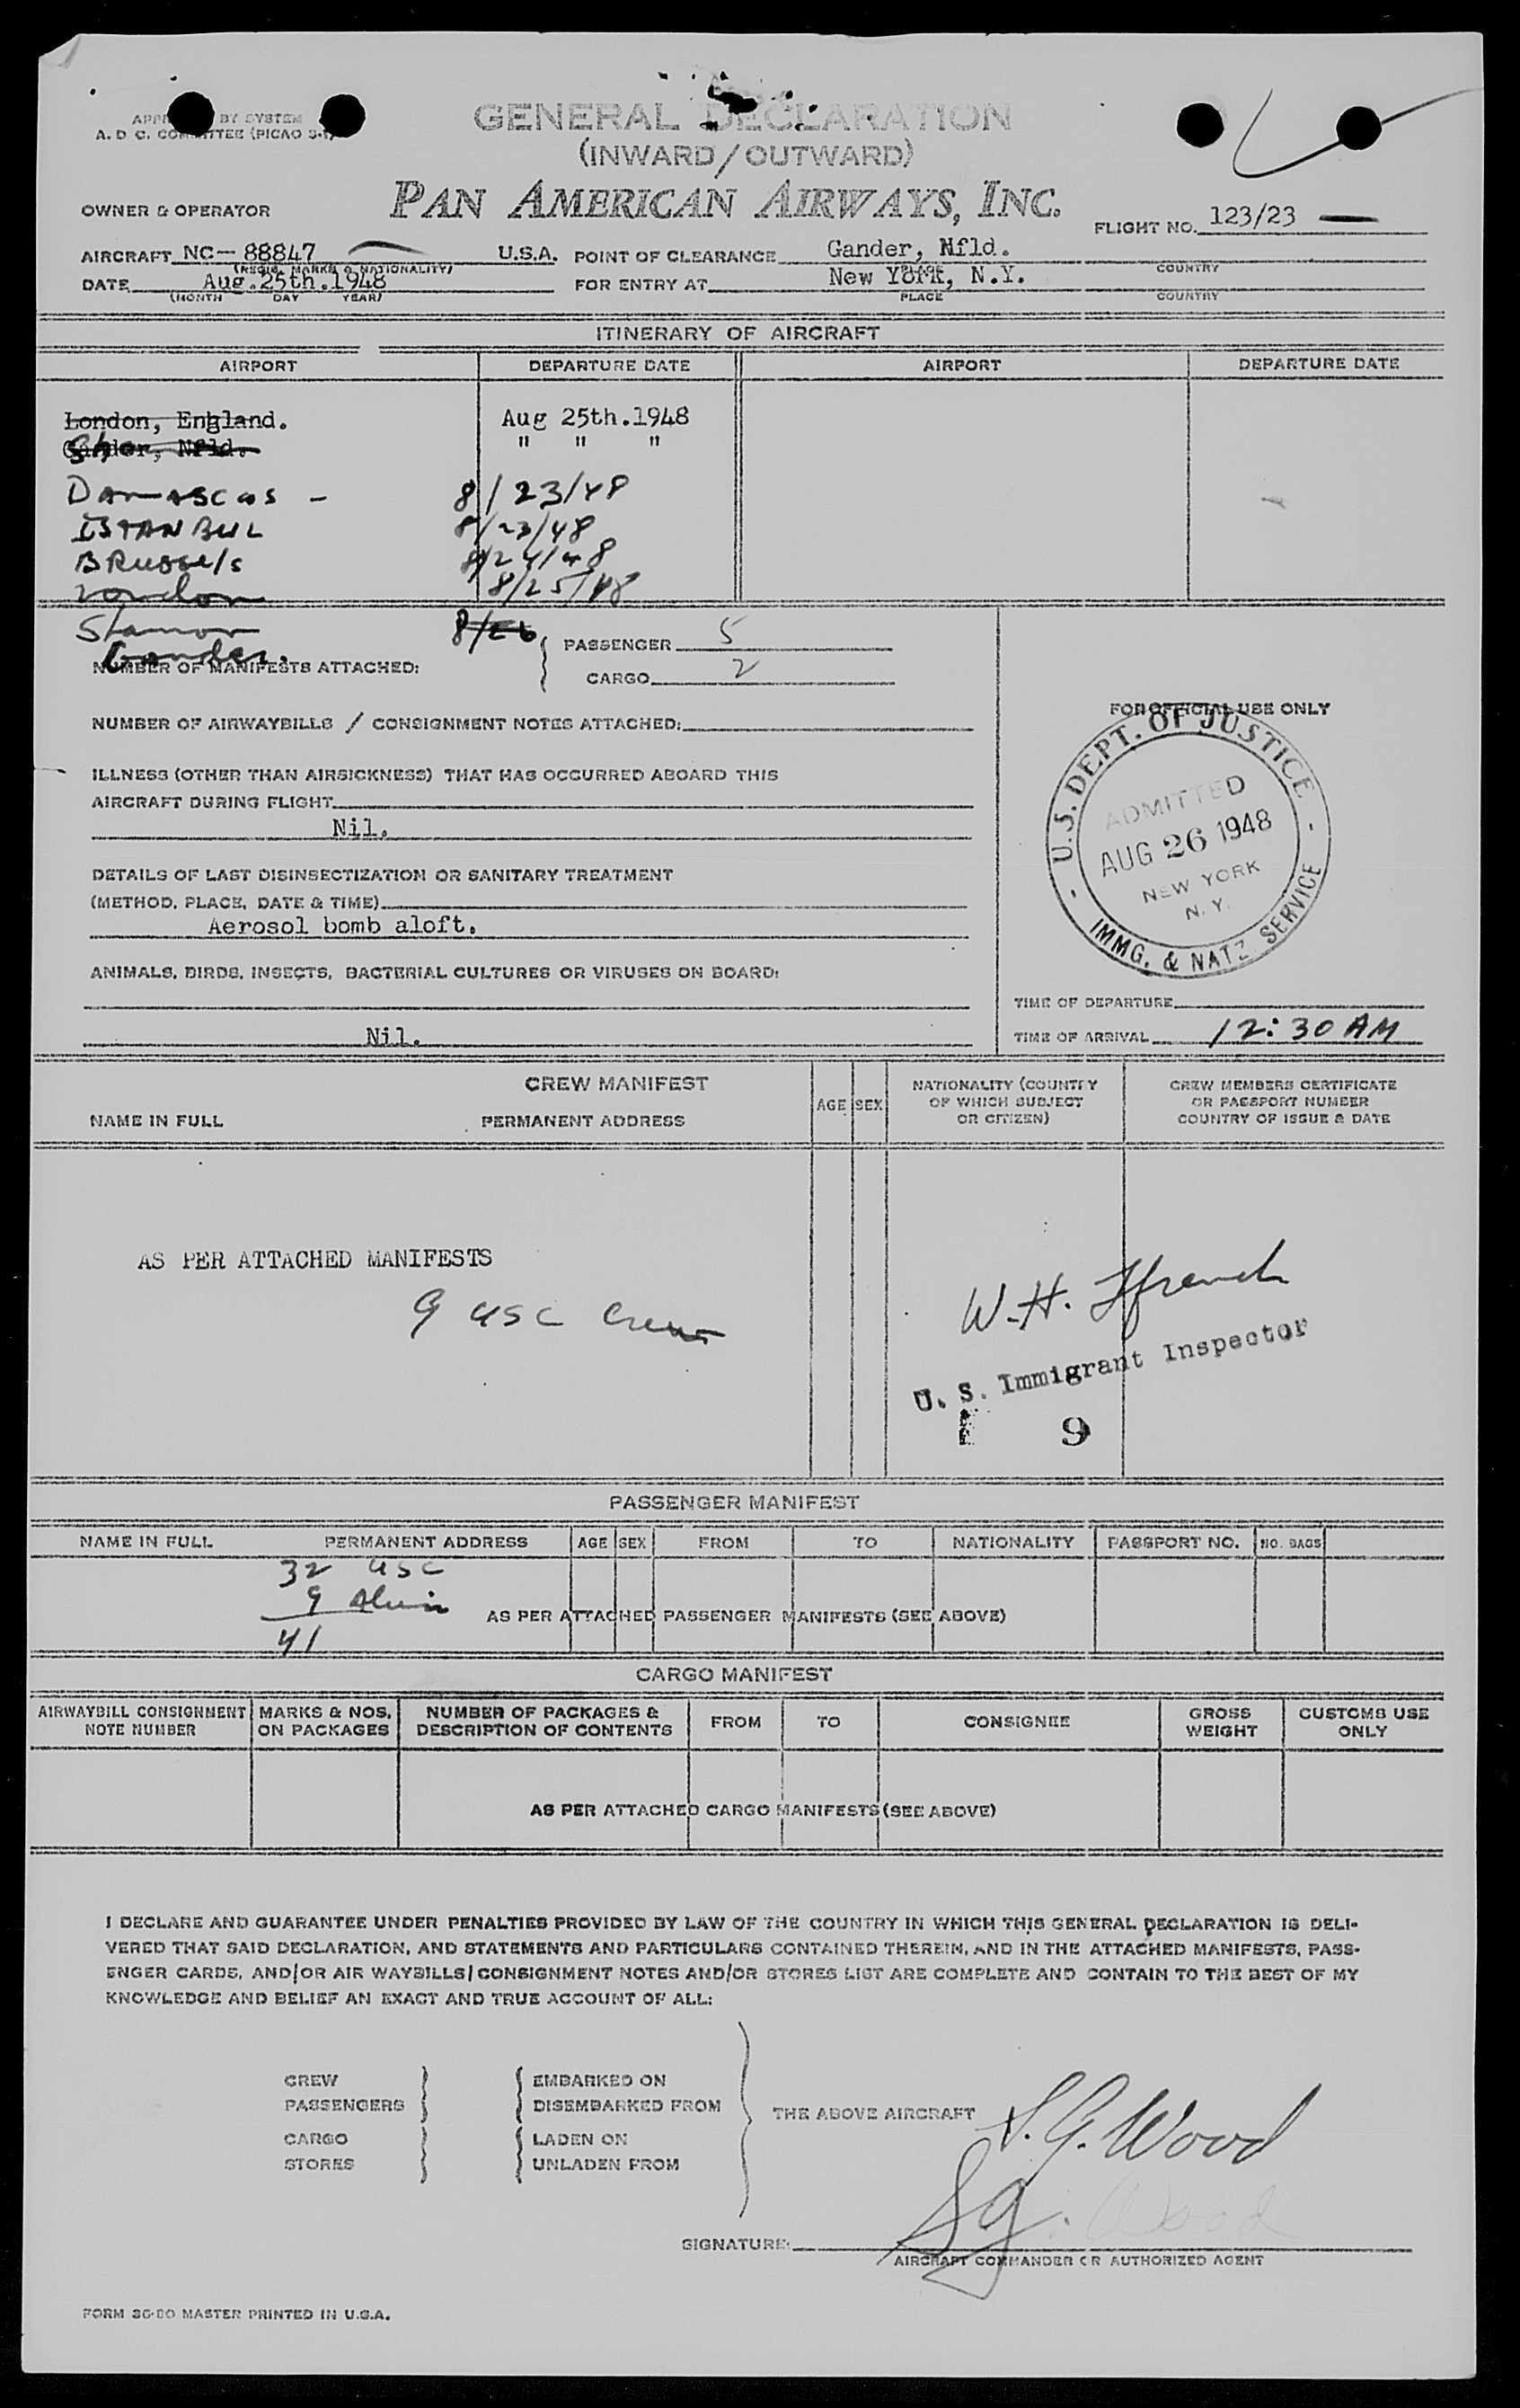 BY SYSTEM
A. D C. COMMITTEE (PICAO 9-1)
GENERAL DECLARATION
(INWARD/OUTWARD)
PAN AMERICAN AIRWAYS, INC.
OWNER & OPERATOR
FLIGHT NO. 123/23
AIRCRAFT NC-88847 U.S.A. POINT OF CLEARANCE Gander, Nfld.
(REGIS. MARKS & NATIONALITY) PLACE COUNTRY
DATE Aug.25th.1948 FOR ENTRY AT New York, N.Y.
(MONTH DAY YEAR) PLACE COUNTRY
ITINERARY OF AIRCRAFT
AIRPORT DEPARTURE DATE AIRPORT DEPARTURE DATE
London, England. Aug 25th.1948
Gander, Nfld. " " "
DAMASCUS - 8/23/48
ISTANBUL 8/23/48
BRUSSels 8/24/48
London 8/25/48
Shannon 8/26
Gander.
NUMBER OF MANIFESTS ATTACHED: PASSENGER 5
CARGO 2
NUMBER OF AIRWAYBILLS / CONSIGNMENT NOTES ATTACHED:
FOR OFFICIAL USE ONLY
ILLNESS (OTHER THAN AIRSICKNESS) THAT HAS OCCURRED ABOARD THIS
AIRCRAFT DURING FLIGHT
Nil.
U.S. DEPT. OF JUSTICE
ADMITTED
AUG 26 1948
NEW YORK
N.Y.
- IMMG. & NATZ SERVICE -
DETAILS OF LAST DISINSECTIZATION OR SANITARY TREATMENT
(METHOD, PLACE, DATE & TIME)
Aerosol bomb aloft.
ANIMALS, BIRDS, INSECTS, BACTERIAL CULTURES OR VIRUSES ON BOARD:
Nil.
TIME OF DEPARTURE
TIME OF ARRIVAL 12:30 AM
CREW MANIFEST
NAME IN FULL PERMANENT ADDRESS AGE SEX NATIONALITY (COUNTRY OF WHICH SUBJECT OR CITIZEN) CREW MEMBERS CERTIFICATE OR PASSPORT NUMBER COUNTRY OF ISSUE & DATE
AS PER ATTACHED MANIFESTS
9 USC Crew
W.H. Ffrench
U. S. Immigrant Inspector
9
PASSENGER MANIFEST
NAME IN FULL PERMANENT ADDRESS AGE SEX FROM TO NATIONALITY PASSPORT NO. NO. BAGS
32 USC
9 Alien
41
AS PER ATTACHED PASSENGER MANIFESTS (SEE ABOVE)
CARGO MANIFEST
AIRWAYBILL CONSIGNMENT NOTE NUMBER MARKS & NOS. ON PACKAGES NUMBER OF PACKAGES & DESCRIPTION OF CONTENTS FROM TO CONSIGNEE GROSS WEIGHT CUSTOMS USE ONLY
AS PER ATTACHED CARGO MANIFESTS (SEE ABOVE)
I DECLARE AND GUARANTEE UNDER PENALTIES PROVIDED BY LAW OF THE COUNTRY IN WHICH THIS GENERAL DECLARATION IS DELI-
VERED THAT SAID DECLARATION, AND STATEMENTS AND PARTICULARS CONTAINED THEREIN, AND IN THE ATTACHED MANIFESTS, PASS-
ENGER CARDS, AND/OR AIR WAYBILLS/CONSIGNMENT NOTES AND/OR STORES LIST ARE COMPLETE AND CONTAIN TO THE BEST OF MY
KNOWLEDGE AND BELIEF AN EXACT AND TRUE ACCOUNT OF ALL:
CREW EMBARKED ON
PASSENGERS DISEMBARKED FROM
THE ABOVE AIRCRAFT S.G. Wood
CARGO LADEN ON
STORES UNLADEN FROM
SIGNATURE: S.G. Wood
AIRCRAFT COMMANDER OR AUTHORIZED AGENT
FORM 36-80 MASTER PRINTED IN U.S.A.